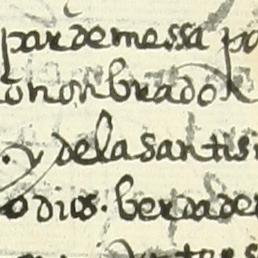 par de messa po
nonbrado
y dela santis
dios. berdader